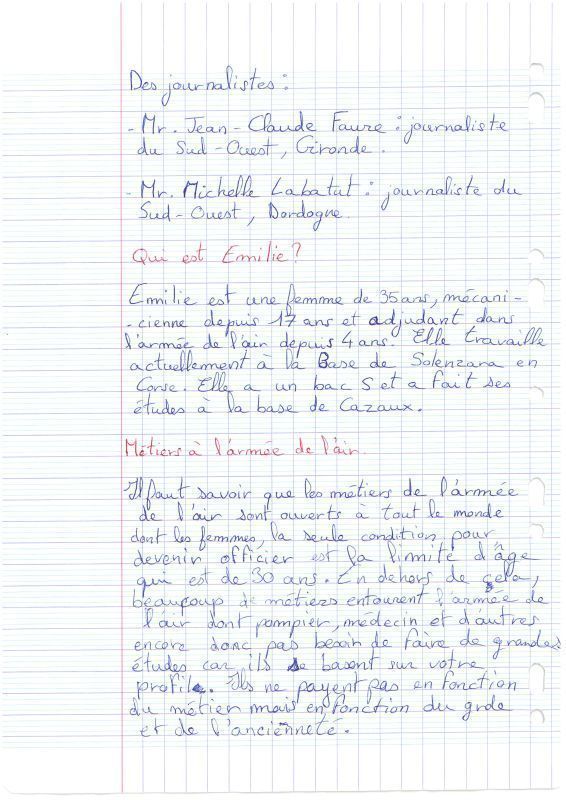 Des journalistes :
- Mr. Jean-Claude Faure : journaliste
du Sud-Ouest, Gironde.
- Mr. Michelle Labatut : journaliste du
Sud-Ouest, Dordogne.
Qui est Emilie ?
Emilie est une femme de 35 ans, mécani-
-cienne depuis 17 ans et adjudant dans
l'armée de l'air depuis 4 ans. Elle travaille
actuellement à la Base de Solenzara en
Corse. Elle a un bac S et a fait ses
études à la base de Cazaux.
Métiers à l'armée de l'air.
Il faut savoir que les métiers de l'armée
de l'air sont ouverts à tout le monde
dont les femmes, la seule condition pour
devenir officier est la limité d'âge
qui est de 30 ans. En dehors de cela,
beaucoup de métiers entourent l'armée de
l'air dont pompier, médecin et d'autres
encore donc pas besoin de faire de grandes
études car ils se basent sur votre
profile. Ils ne payent pas en fonction
du métier mais en fonction du grde
et de l'ancienneté.